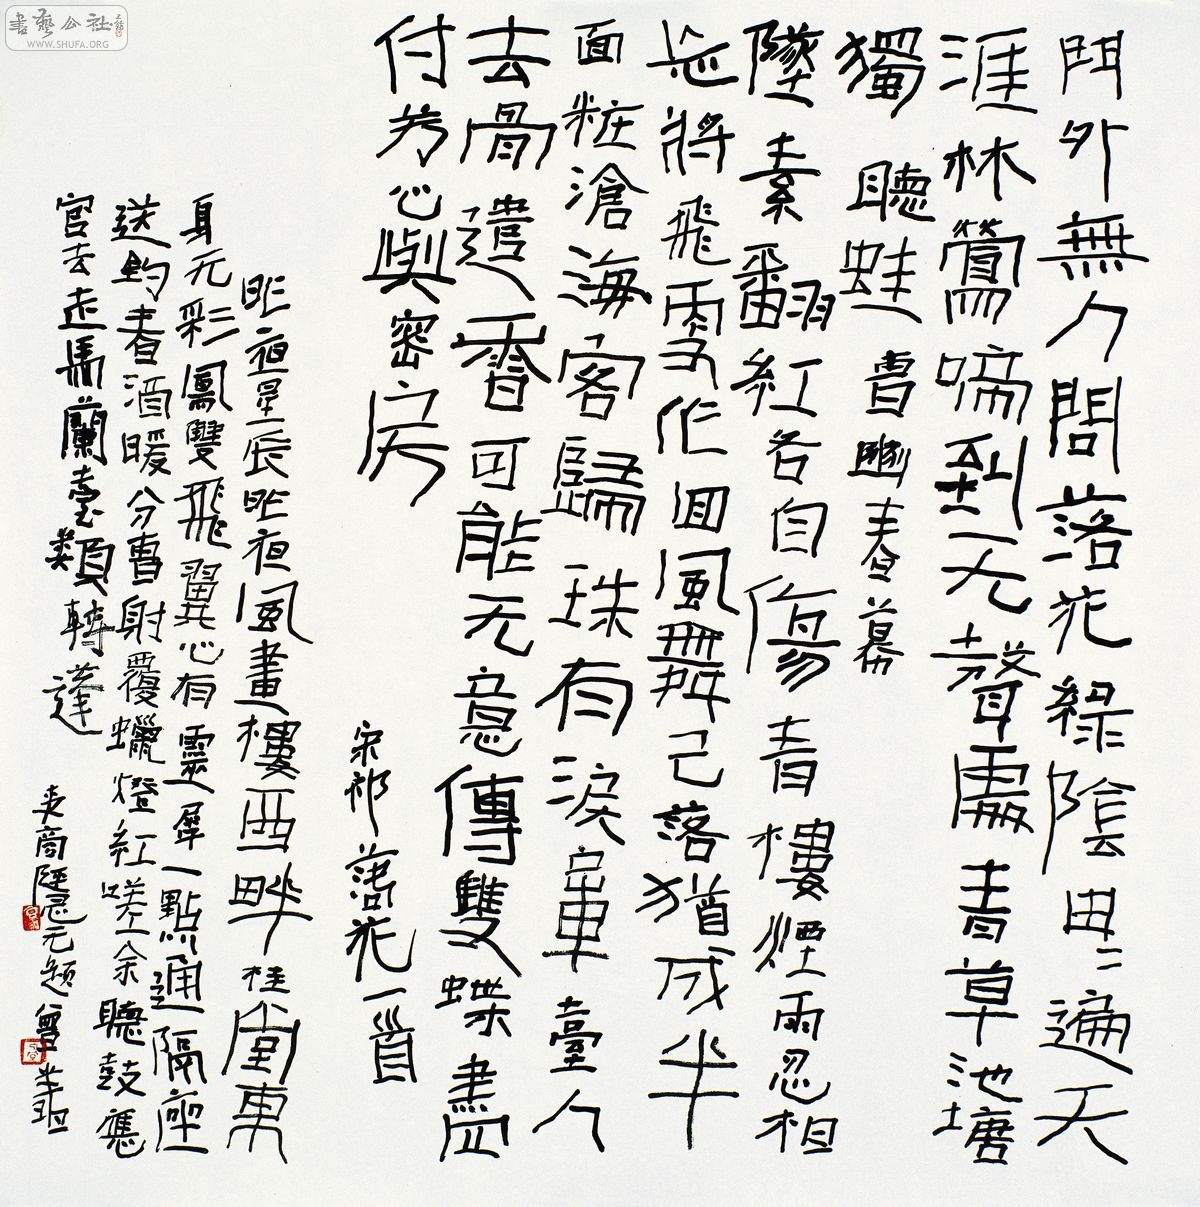 書藝公社
WWW.SHUFA.ORG
門外無人問落花綠陰冉冉遍天
涯林鶯啼到无聲處青草池塘
獨聽蛙 曹豳春暮
墜素翻紅各自傷青樓煙雨忍相
忘將飛更作回風舞已落猶成半
面粧滄海客歸珠有淚章臺人
去骨遺香可能无意傳雙蝶盡
付芳心與密房
宋祁落花一首
昨夜星辰昨夜風畫樓西畔桂堂東
身无彩鳳雙飛翼心有靈犀一點通隔座
送鈎春酒暖分曹射覆蠟燈紅嗟余聽鼓應
官去走馬蘭臺類轉蓬
李商隱无題